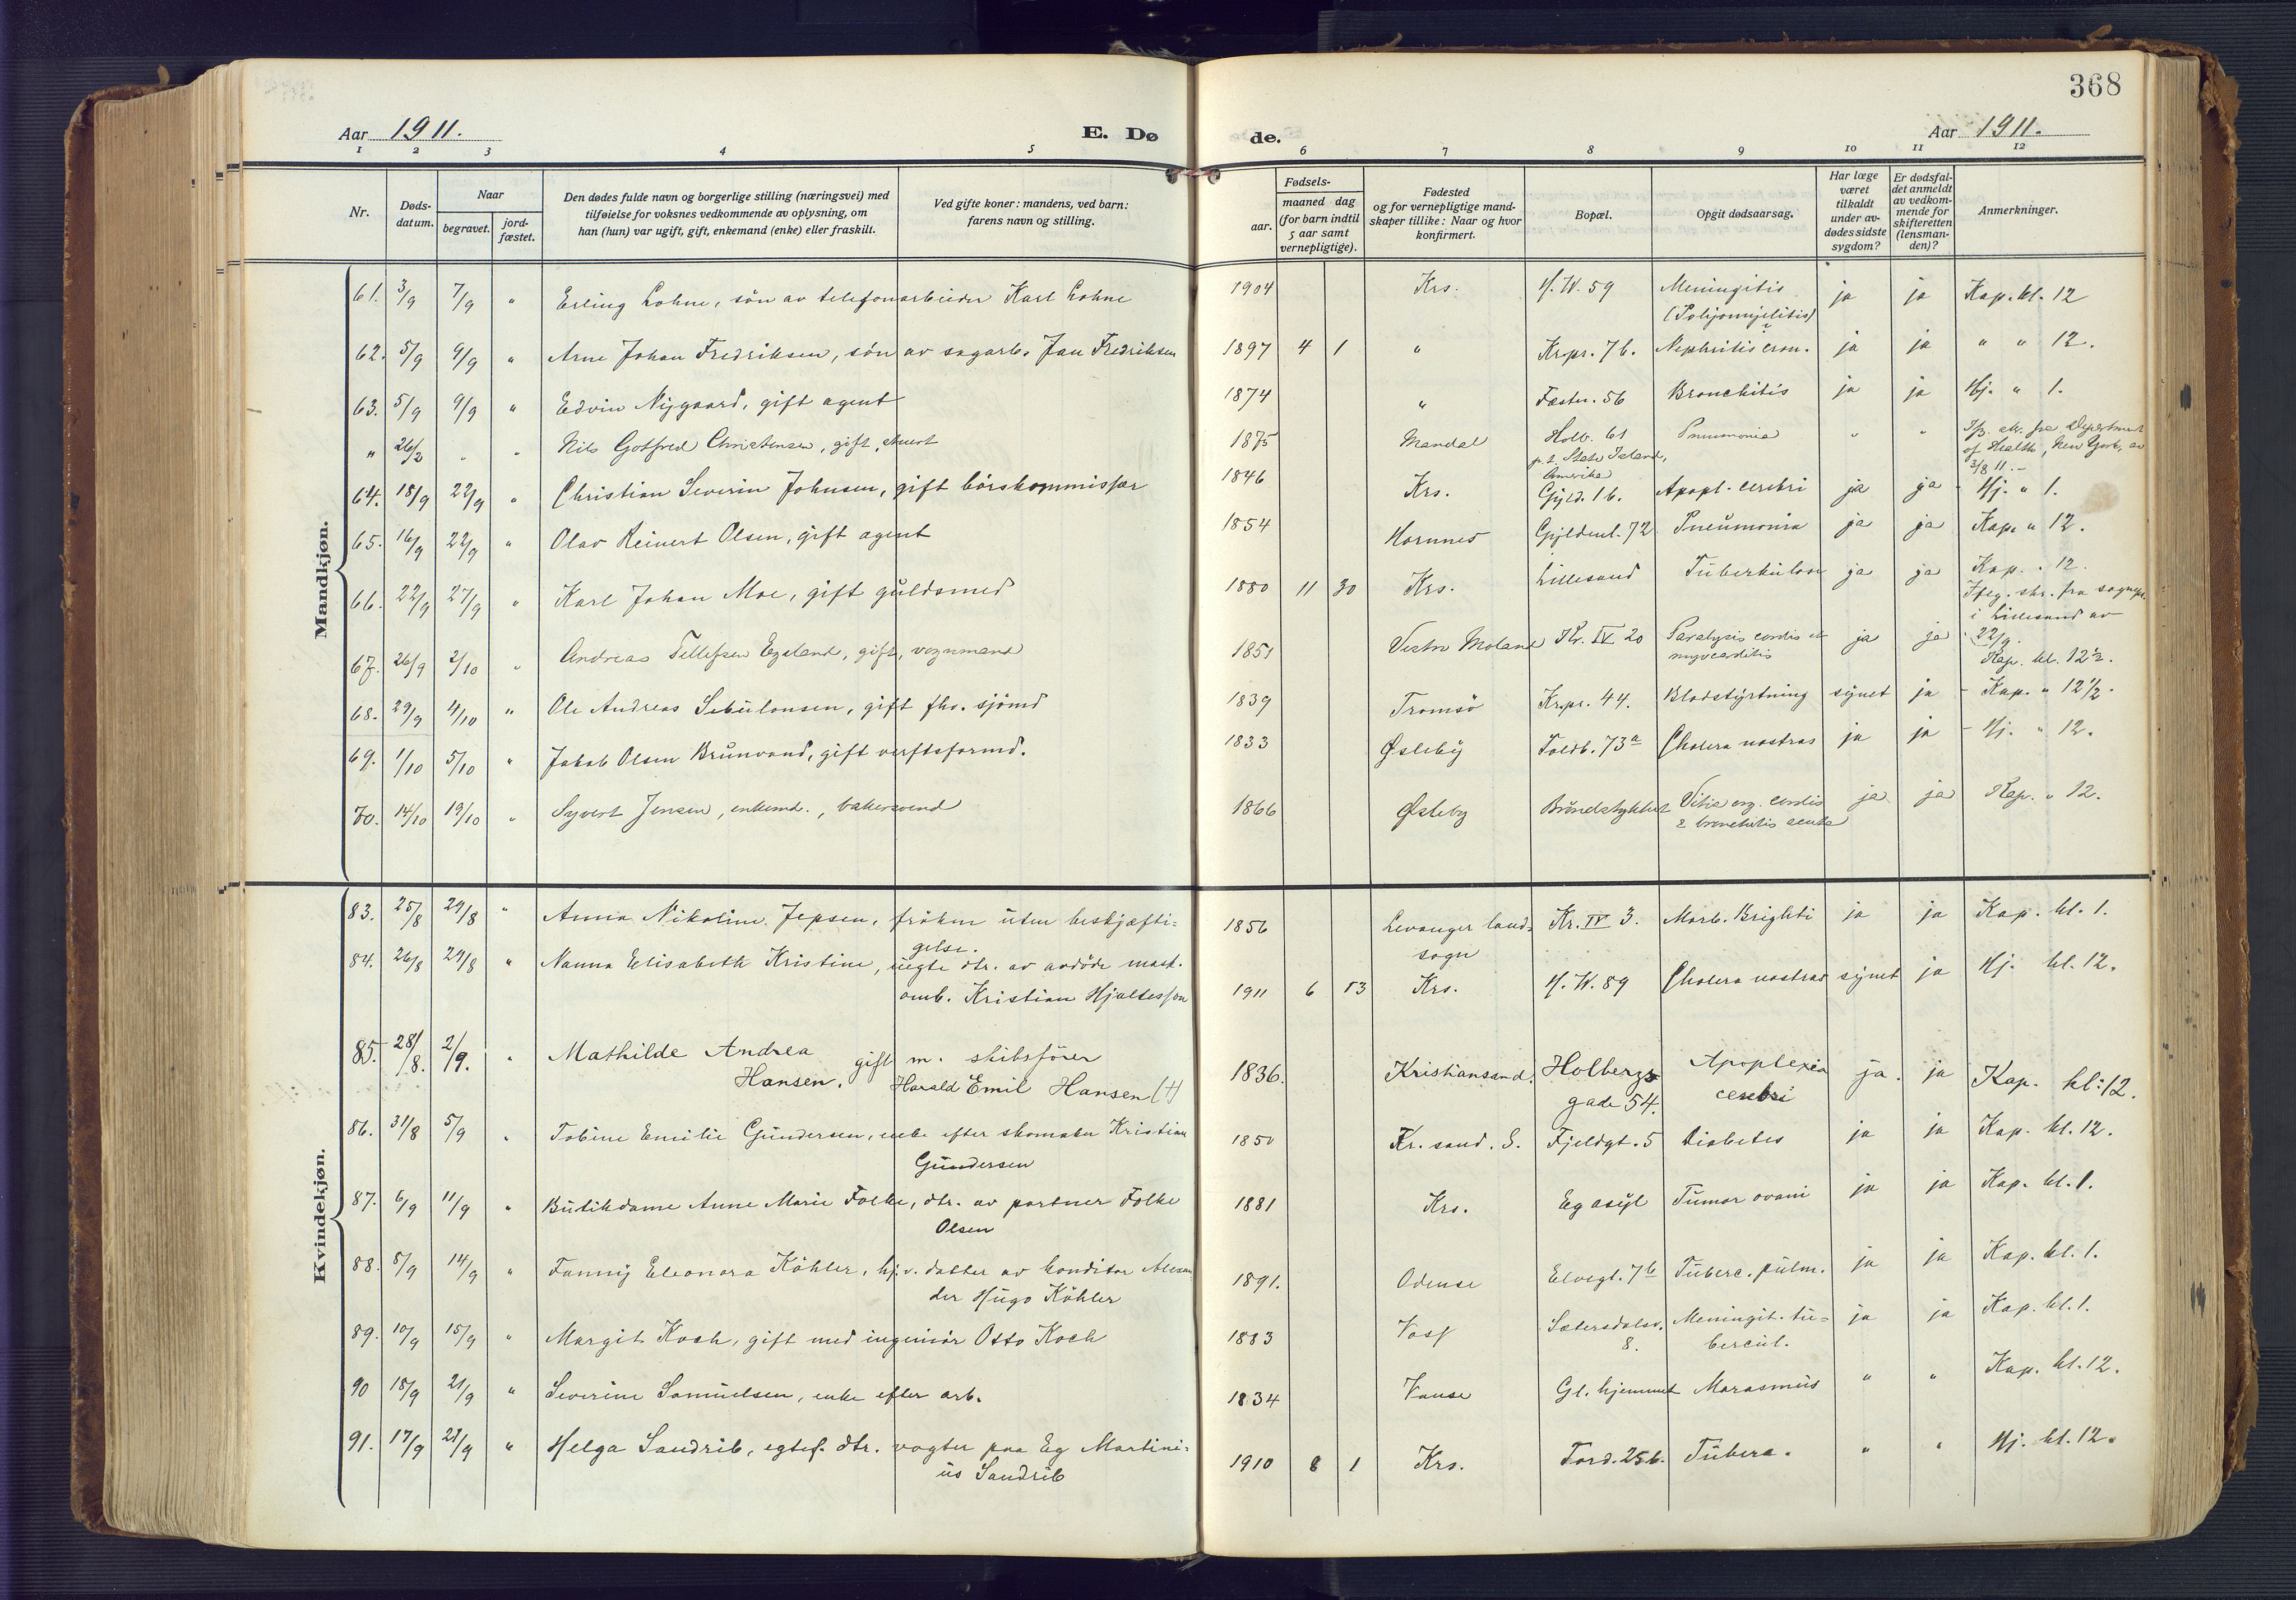 368
Aar 1911.
E. Døde.
Aar 1911.
1 2 3 4 5 6 7 8 9 10 11 12
Nr.
Døds-datum.
Naar
begravet.
jord-fæstet.
Den dødes fulde navn og borgerlige stilling (næringsvei) med
tilføielse for voksnes vedkommende av oplysning, om
han (hun) var ugift, gift, enkemand (enke) eller fraskilt.
Ved gifte koner: mandens, ved barn:
farens navn og stilling.
Fødsels-
aar.
maaned dag
(for barn indtil
5 aar samt
vernepligtige).
Fødested
og for vernepligtige mand-
skaper tillike: Naar og hvor
konfirmert.
Bopæl.
Opgit dødsaarsag.
Har læge
været
tilkaldt
under av-
dødes sidste
sygdom?
Er dødsfal-
det anmeldt
av vedkom-
mende for
skifteretten
(lensman-
den)?
Anmerkninger.
Mandkjøn.
61. 3/9 7/9 " Erling Lohne, søn av telefonarbeider Karl Lohne 1904 Krs. H. W. 59 Meningitis ja ja Kap. kl. 12
62. 5/9 9/9 " Arne Johan Fredriksen, søn av sagarb. Jan Fredriksen 1897 4 1 " Kr.pr. 76. Nephritis cron. ja ja " " 12.
63. 5/9 9/9 " Edvin Nygaard, gift agent 1874 " Fæstn. 56 Bronchitis ja ja Hj. " 1.
" 26/2 " " Nils Gotfred Christensen, gift, stuert 1875 Mandal Holb. 61 Pneumonia " " Ifg. skr. fra Department
p.t. State Island, of Health, New York, av
Amerika 3/8 11.-
64. 18/9 22/9 " Christian Severin Johnsen, gift börskommissær 1846 Krs. Gyld. 16. Apopl. cerebri ja ja Hj. " 1.
65. 16/9 22/9 " Olav Reinert Olsen, gift agent 1854 Hornnes Gyldenl. 72 Pneumonia ja ja Kap. " 12.
66. 22/9 27/9 " Karl Johan Moe, gift guldsmed 1880 11 30 Krs. Lillesand Tuberkulose ja ja Kap. " 12.
Ifølg. skr. fra sognepr.
i Lillesand av
22/9.
67. 26/9 2/10 " Andreas Tellefsen Egeland, gift, vognmand 1851 Vestre Moland Kr. IV 20 Paralysis cordis et ja ja Kap. kl. 12½.
myocarditis
68. 29/9 4/10 " Ole Andreas Sebulonsen, gift fhv. sjömd 1839 Tromsö Kr.pr. 44. Blodstyrtning synet ja Kap. " 12½.
69. 1/10 5/10 " Jakob Olsen Brunvand, gift verftsformd. 1833 Øsleby Toldb. 73a Cholera nostras ja ja Hj. " 12.
70. 14/10 19/10 " Syvert Jensen, enkemd., bakersvend 1866 Øsleby Bröndstykket Vitia org. cordis ja ja Kap. " 12.
& bronchitis acuta
Kvindekjøn.
83. 25/8 29/8 " Anna Nikoline Jepsen, fröken uten beskjæfti- 1856 Levanger lands Kr. IV 3. Morb. Brighti ja ja Kap. kl. 1.
gelse. sogn
84. 26/8 29/8 " Nanna Elisabeth Kristine, uegte dtr. av avdöde mask.
omb. Kristian Hjaltesson 1911 6 13 Krs. H. W. 89 Cholera nostras synet ja Hj. kl. 12.
85. 28/8. 2/9. " Mathilde Andrea gift m. skibsförer
Hansen. Harald Emil Hansen (†) 1836. Kristiansand. Holbergs Apoplexia ja. ja Kap. kl: 12.
gade 54. cerebri
86. 31/8 5/9 " Tobine Emilie Gundersen, enke efter skomaker Kristian 1850 Kr.sand. S. Fjeldgt. 5 Diabetes ja ja Kap. kl. 12.
Gundersen
87. 6/9 11/9 " Butikdame Anne Marie Folke, dtr. av portner Folke 1881 Krs. Eg asyl Tumor ovarii ja ja Kap. kl. 1.
Olsen
88. 8/9 14/9 " Fanny Eleonora Köhler, hj.v. datter av konditor Alexan 1891. Odense Elvegt. 7b Tuberc. pulm. ja ja Kap. kl. 1.
der Hugo Köhler
89. 10/9 15/9 " Margit Koch, gift med ingeniör Otto Koch 1883 Voss Sætersdalsv. Meningit. tu- ja ja Kap. kl. 1.
8. bercul.
90 18/9 21/9 " Severine Samuelsen, enke efter arb. 1834 Vanse Gl. hjemmet Marasmus " " Kap. kl. 12.
91. 17/9 21/9 " Helga Sandrib, egtef. dtr. vogter paa Eg Martini- 1910 8 1 Krs. Tord. 25b. Tuberc. " " Hj. kl. 12.
us Sandrib